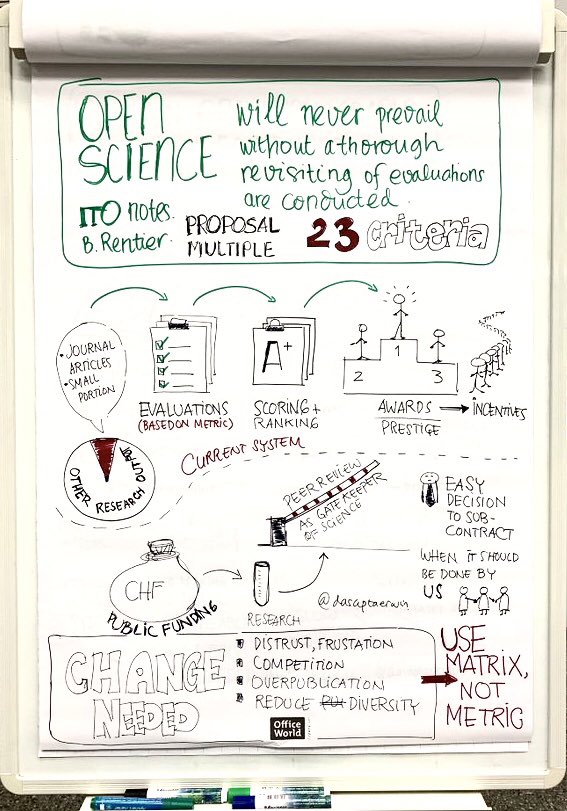 OPEN
SCIENCE
will never prevail
without a thorough
revisiting of evaluations
are conducted.
ITO notes.
B. Rentier.
PROPOSAL
MULTIPLE
23 criteria
• JOURNAL
ARTICLES
• SMALL
PORTION
OTHER RESEARCH OUTPUT
EVALUATIONS
(BASED ON METRIC)
A+
SCORING +
RANKING
1
2
3
AWARDS → INCENTIVES
PRESTIGE
CURRENT SYSTEM
PEER REVIEW
AS GATE KEEPER
OF SCIENCE
EASY
DECISION
TO SUB-
CONTRACT
WHEN IT SHOULD
BE DONE BY
US
CHF
PUBLIC FUNDING
RESEARCH
@dasaptaerwin
CHANGE
NEEDED
DISTRUST, FRUSTATION
COMPETITION
OVERPUBLICATION
REDUCE DIVERSITY
USE
MATRIX,
NOT
METRIC
Office
World